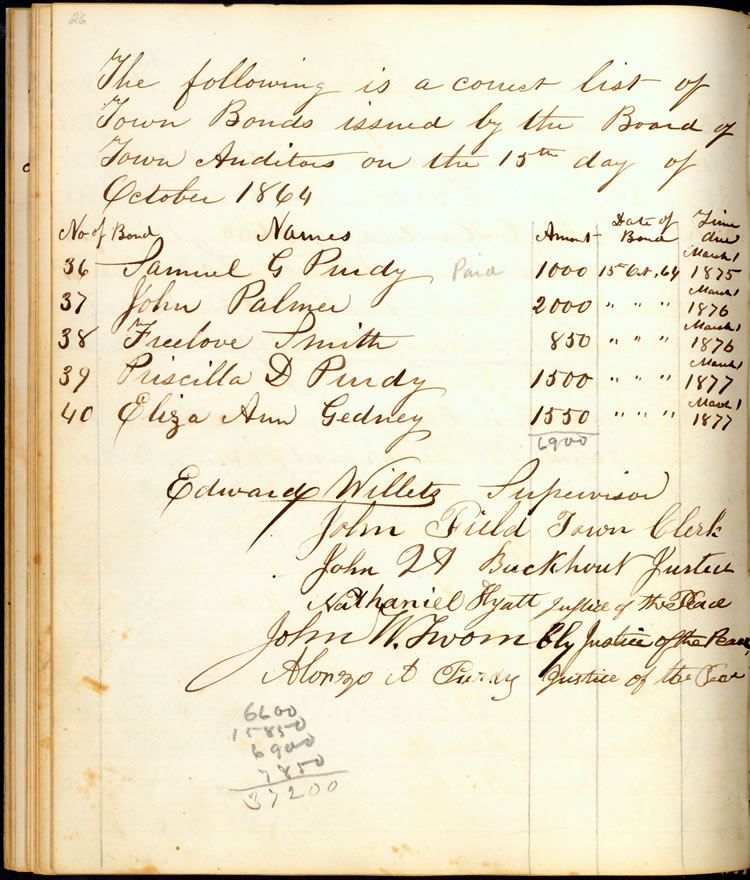 26
The following is a correct list of
Town Bonds issued by the Board of
Town Auditors on the 15th day of
October 1864
No of Bond Names Amount Date of Bond Time due
36 Samuel G Purdy Paid 1000 15 Oct, 64 March 1 1875
37 John Palmer 2000 " " " March 1 1876
38 Freelove Smith 850 " " " March 1 1876
39 Priscilla D Purdy 1500 " " " March 1 1877
40 Eliza Ann Gedney 1550 " " " March 1 1877
6900
Edward Willets Supervisor
John Field Town Clerk
John Q A Buckhout Justice
Nathaniel Hyatt Justice of the Peace
John W. Twombly Justice of the Peace
Alonzo A Purdy Justice of the Peace
6600
15850
6900
7850
37200